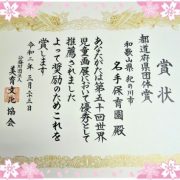 賞状
都道府県団体賞
和歌山県 紀の川市
名手保育園 殿
あなたがたは第五十回世界
児童画展において優秀として
推薦されました
よって奨励のためこれを
賞します
令和二年三月二十五日
公益財団法人
美育文化協会